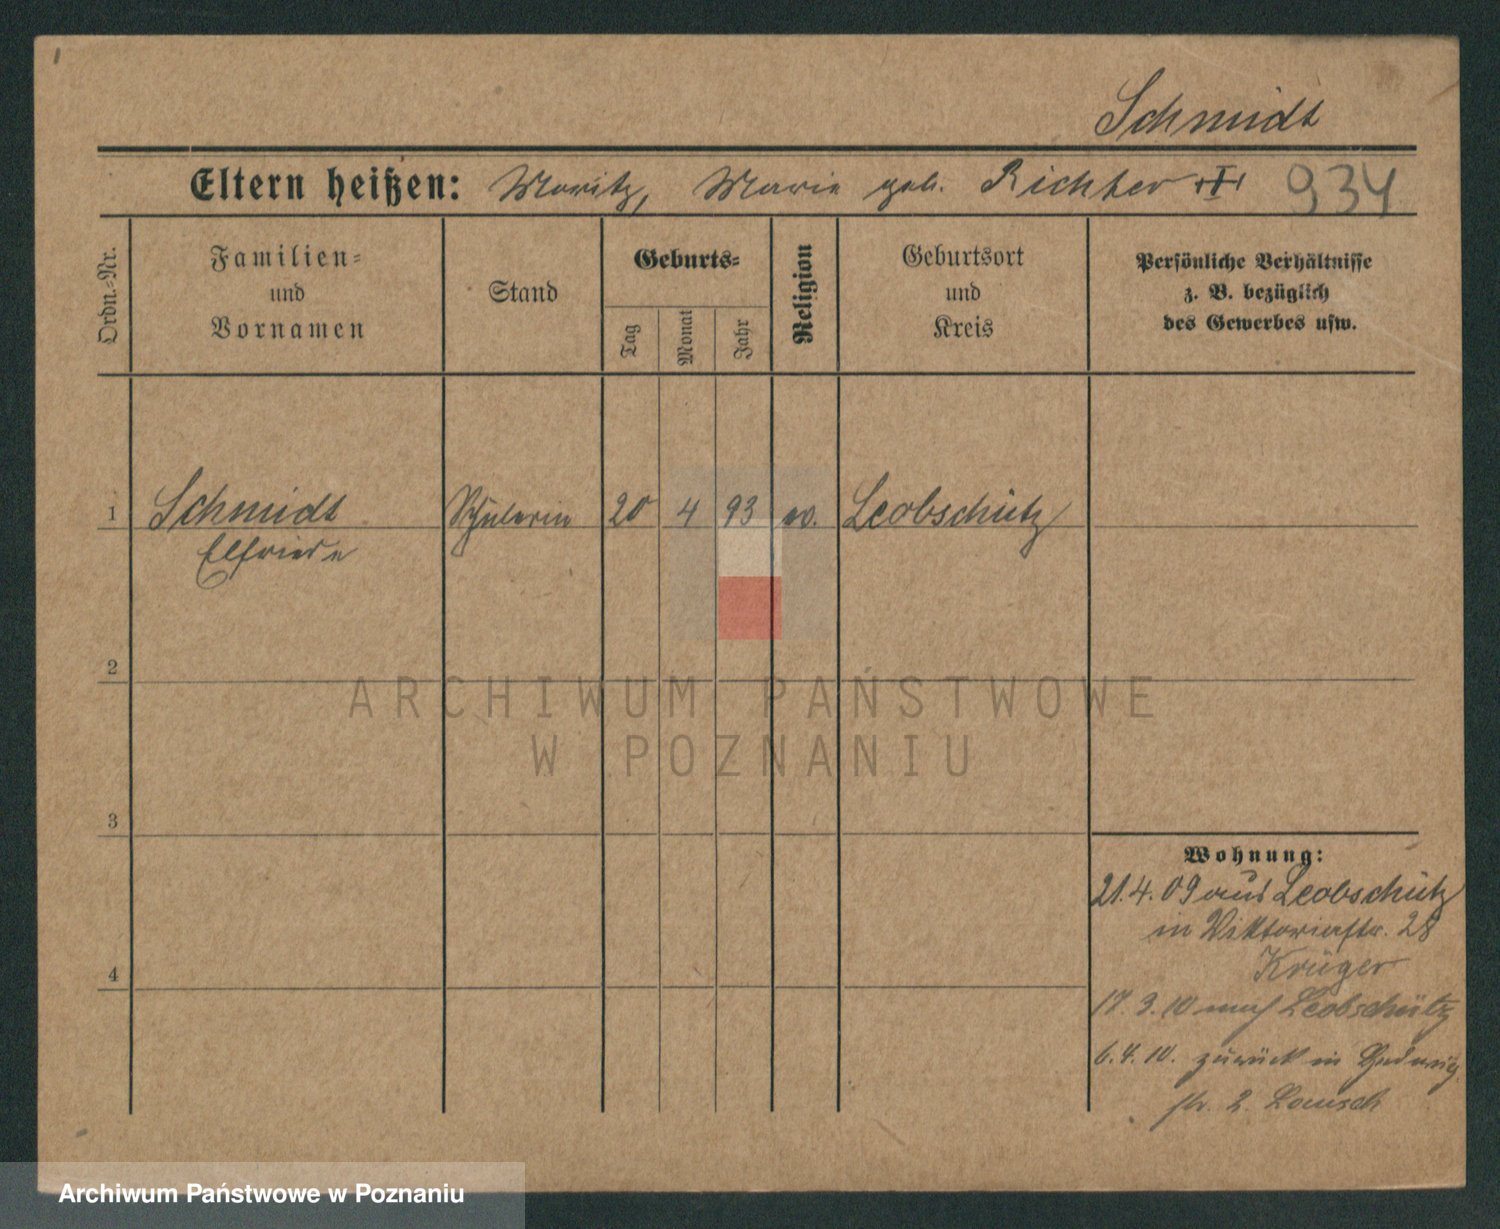 Schmidt
Eltern heißen: Moritz, Marie geb. Richter 934
Ordn.-Nr.
Familien-
und
Vornamen
Stand
Geburts-
Tag
Monat
Jahr
Religion
Geburtsort
und
Kreis
Persönliche Verhältnisse
z. B. bezüglich
des Gewerbes usw.
1 Schmidt Schülerin 20 4 93 ev. Leobschütz
Elfriede
2
ARCHIWUM PAŃSTWOWE
W POZNANIU
3
Wohnung:
21.4.09 aus Leobschütz
in Viktoriastr. 28
Krüger
4
17.3.10 nach Leobschütz
6.4.10. zurück in Hedwig
str. 2.
Archiwum Państwowe w Poznaniu